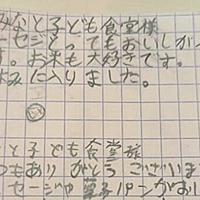 なと子ども食堂様
セージとってもおいしかっ
す。お米も大好きです。
に入りました。
と子ども食堂様
つもありがとうございま
セージや菓子パンがおい